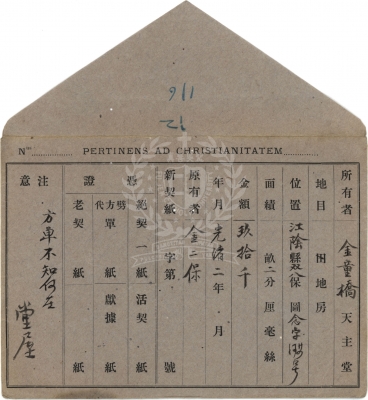 116
12
No. PERTINENS AD CHRISTIANITATEM
所有者 金童橋 天主堂
地目 田地房
位置 江陰縣 保 圖念字 號
面積 畝二分 厘毫絲
金額 玖拾千
年月 光緒二年 月
原有者 金二保
新契紙 字第 號
憑證
絕契一紙 活契 紙
劈方代單 紙 獻據 紙
老契 紙
注意
方單不知何在
堂屋